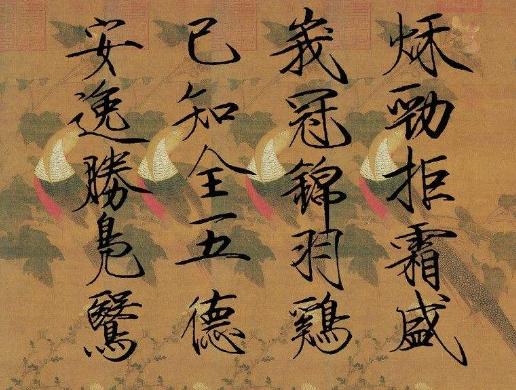 秌勁拒霜盛
峩冠錦羽鷄
已知全五德
安逸勝鳧鷖